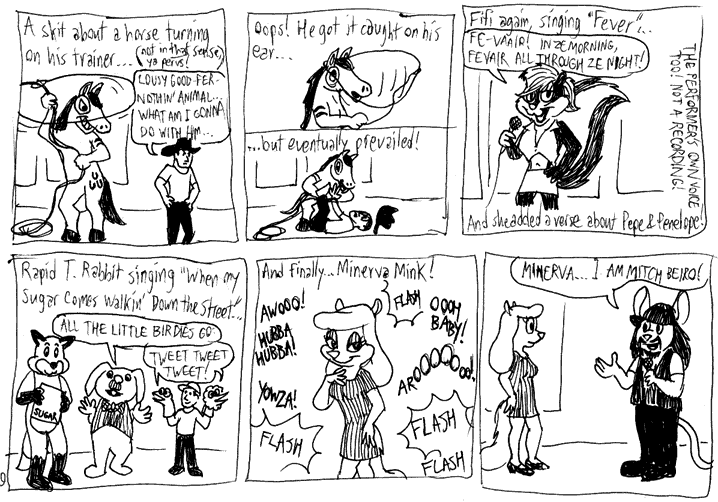 A skit about a horse turning
on his trainer...
(not in that sense,
ya pervs!)
LOUSY GOOD-FER-
NOTHIN' ANIMAL...
WHAT AM I GONNA
DO WITH HIM...
Oops! He got it caught on his
ear...
...but eventually prevailed!
Fifi again, singing "Fever"...
FE-VAIR! IN ZE MORNING,
FEVAIR ALL THROUGH ZE NIGHT!
THE PERFORMER'S OWN VOICE
TOO! NOT A RECORDING!
And she added a verse about Pepe & Penelope!
Rapid T. Rabbit singing "When my
Sugar Comes Walkin' Down the Street"...
ALL THE LITTLE BIRDIES GO
TWEET TWEET
TWEET!
SUGAR
And finally... Minerva Mink!
AWOOO!
HUBBA
HUBBA!
YOWZA!
FLASH
FLASH
OOOH
BABY!
AROOOOOO!
FLASH
FLASH
MINERVA... I AM MITCH BEIRO!
9